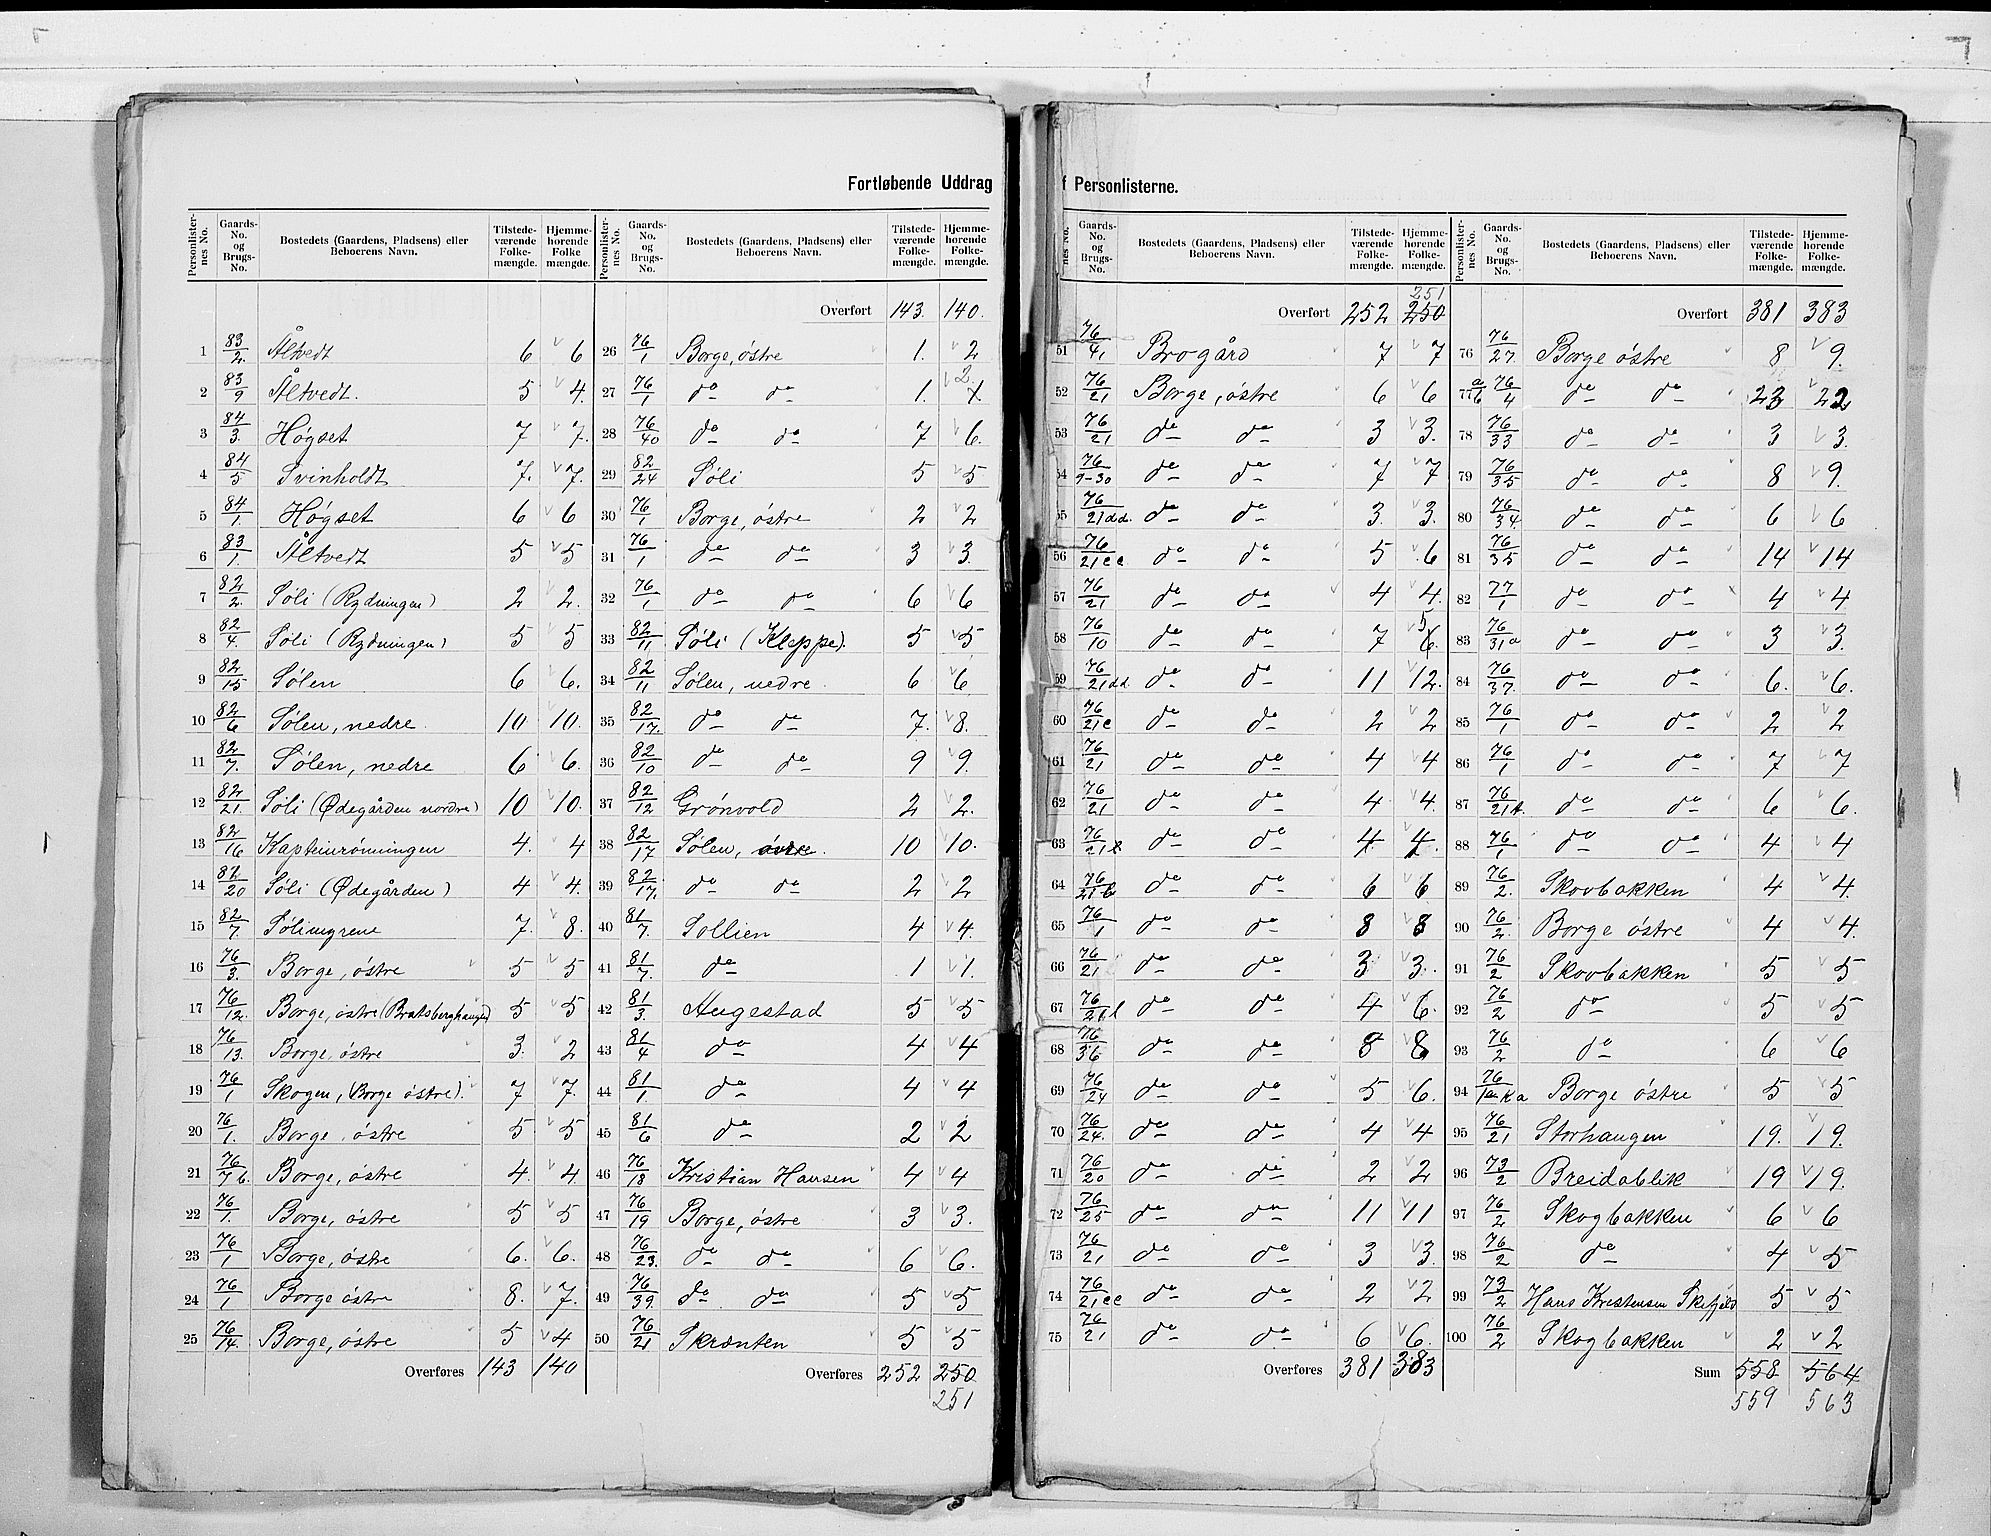 Fortløbende Uddrag
f Personlisterne.
Personlister-nes No. Gaards-No. og Brugs-No. Bostedets (Gaardens, Pladsens) eller Beboerens Navn. Tilstede-værende Folke-mængde. Hjemme-hørende Folke mængde.
Overført 143. 140.
1 83/2. Åltvedt 6 6
2 83/9 Åltvedt. 5 4.
3 84/3. Høgset 7 7.
4 84/5 Svinholdt 7. 7.
5 84/1. Høgset 6 6
6 83/1. Åltvedt 5 5
7 82/2. Søli (Rydningen) 2 2.
8 82/4. Søli (Rydningen) 5 5
9 82/15 Sølen 6 6.
10 82/6 Sølen, nedre. 10 10.
11 82/7. Sølen, nedre 6 6.
12 82/21. Søli (Ødegården nordre) 10 10.
13 82/16 Kapteinrønningen 4. 4
14 82/20 Søli (Ødegården) 4 4.
15 82/7. Sølimyrene 7. 8.
16 76/3. Borge, østre 5 5
17 76/12. Borge, østre (Bratsberghaugen) 5 5
18 76/13. Borge, østre 3. 2
19 76/1 Skogen, (Borge østre). 7 7.
20 76/1. Borge, østre 5 5
21 76/7b. Borge, østre 4. 4.
22 76/1. Borge, østre 5 5
23 76/1 Borge, østre 6. 6.
24 76/1 Borge østre 8. 7.
25 76/14. Borge, østre 5 4
Overføres 143 140
26 76/1 Borge, østre 1. 2
27 76/1 do do 1. 2
28 76/40 do do 7 6.
29 82/24 Søli 5 5
30 76/1 Borge, østre 2 2
31 76/1 do do 3 3.
32 76/1 do do 6 6
33 82/11 Søli (Kleppe). 5 5
34 82/11 Sølen, nedre. 6 6
35 82/17. do do 7. 8.
36 82/10 do do 9 9.
37 82/12 Grønvold 2 2.
38 82/17 Sølen, øvre. 10 10.
39 82/17. do do 2 2
40 81/7. Sollien 4 4.
41 81/7. do 1 1.
42 81/3. Augestad 5 5
43 81/4 do 4 4
44 81/1. do 4 4
45 81/6 do 2 2
46 76/18 Kristian Hansen 4 4
47 76/19 Borge, østre 3 3.
48 76/23. do do 6 6.
49 76/39. do do 5 5
50 76/21 Skrænten 5 5
Overføres 252 250
251
Overført 252 250
251
51 76/41 Brogård 7 7
52 76/21 Borge, østre 6 6
53 76/21 do do 3 3.
54 76/9-30 do do 7 7
55 76/21dd. do do 3. 3.
56 76/21cc do do 5 6
57 76/21 do do 4 4.
58 76/10 do do 7 5
59 76/21dd do do 11 12.
60 76/21c do do 2 2
61 76/21 do do 4 4
62 76/21 do do 4. 4.
63 76/21 do do 4. 4.
64 76/21b do do 6 6
65 76/1 do do 8 8
66 76/21 do do 3 3.
67 76/21l do do 4 6.
68 76/36 do do 8 8
69 76/24 do do 5 6.
70 76/24. do do 4 4
71 76/20 do do 2 2
72 76/25 do do 11 11
73 76/21 do do 3 3.
74 76/21cc do do 2 2
75 76/21 do do 6 6.
Overføres 381 383
Overført 381 383
76 76/27. Borge østre 8 9.
77 a/b 76/4 do do 23 22
78 76/33 do do 3 3.
79 76/35 do do 8 9.
80 76/34. do do 6 6
81 76/35 do do 14 14
82 77/1 do do 4 4
83 76/31a do do 3 3.
84 76/37. do do 6. 6.
85 76/1 do do 2 2
86 76/1 do do 7 7
87 76/21 do do 6 6.
88 76/1 do do 4 4
89 76/2. Skovbakken 4 4.
90 76/2. Borge østre 4 4.
91 76/2 Skovbakken 5 5
92 76/2 do 5 5
93 76/2 do 6 6
94 76/ Borge østre 5 5
95 76/21 Storhaugen 19. 19.
96 73/2 Breidablik 19 19.
97 76/2 Skogbakken 6 6
98 76/2 do 4 5
99 73/2 Hans Kristensen Skifjeld 5 5
100 76/2 Skogbakken 2 2
Sum 558 564
559 563